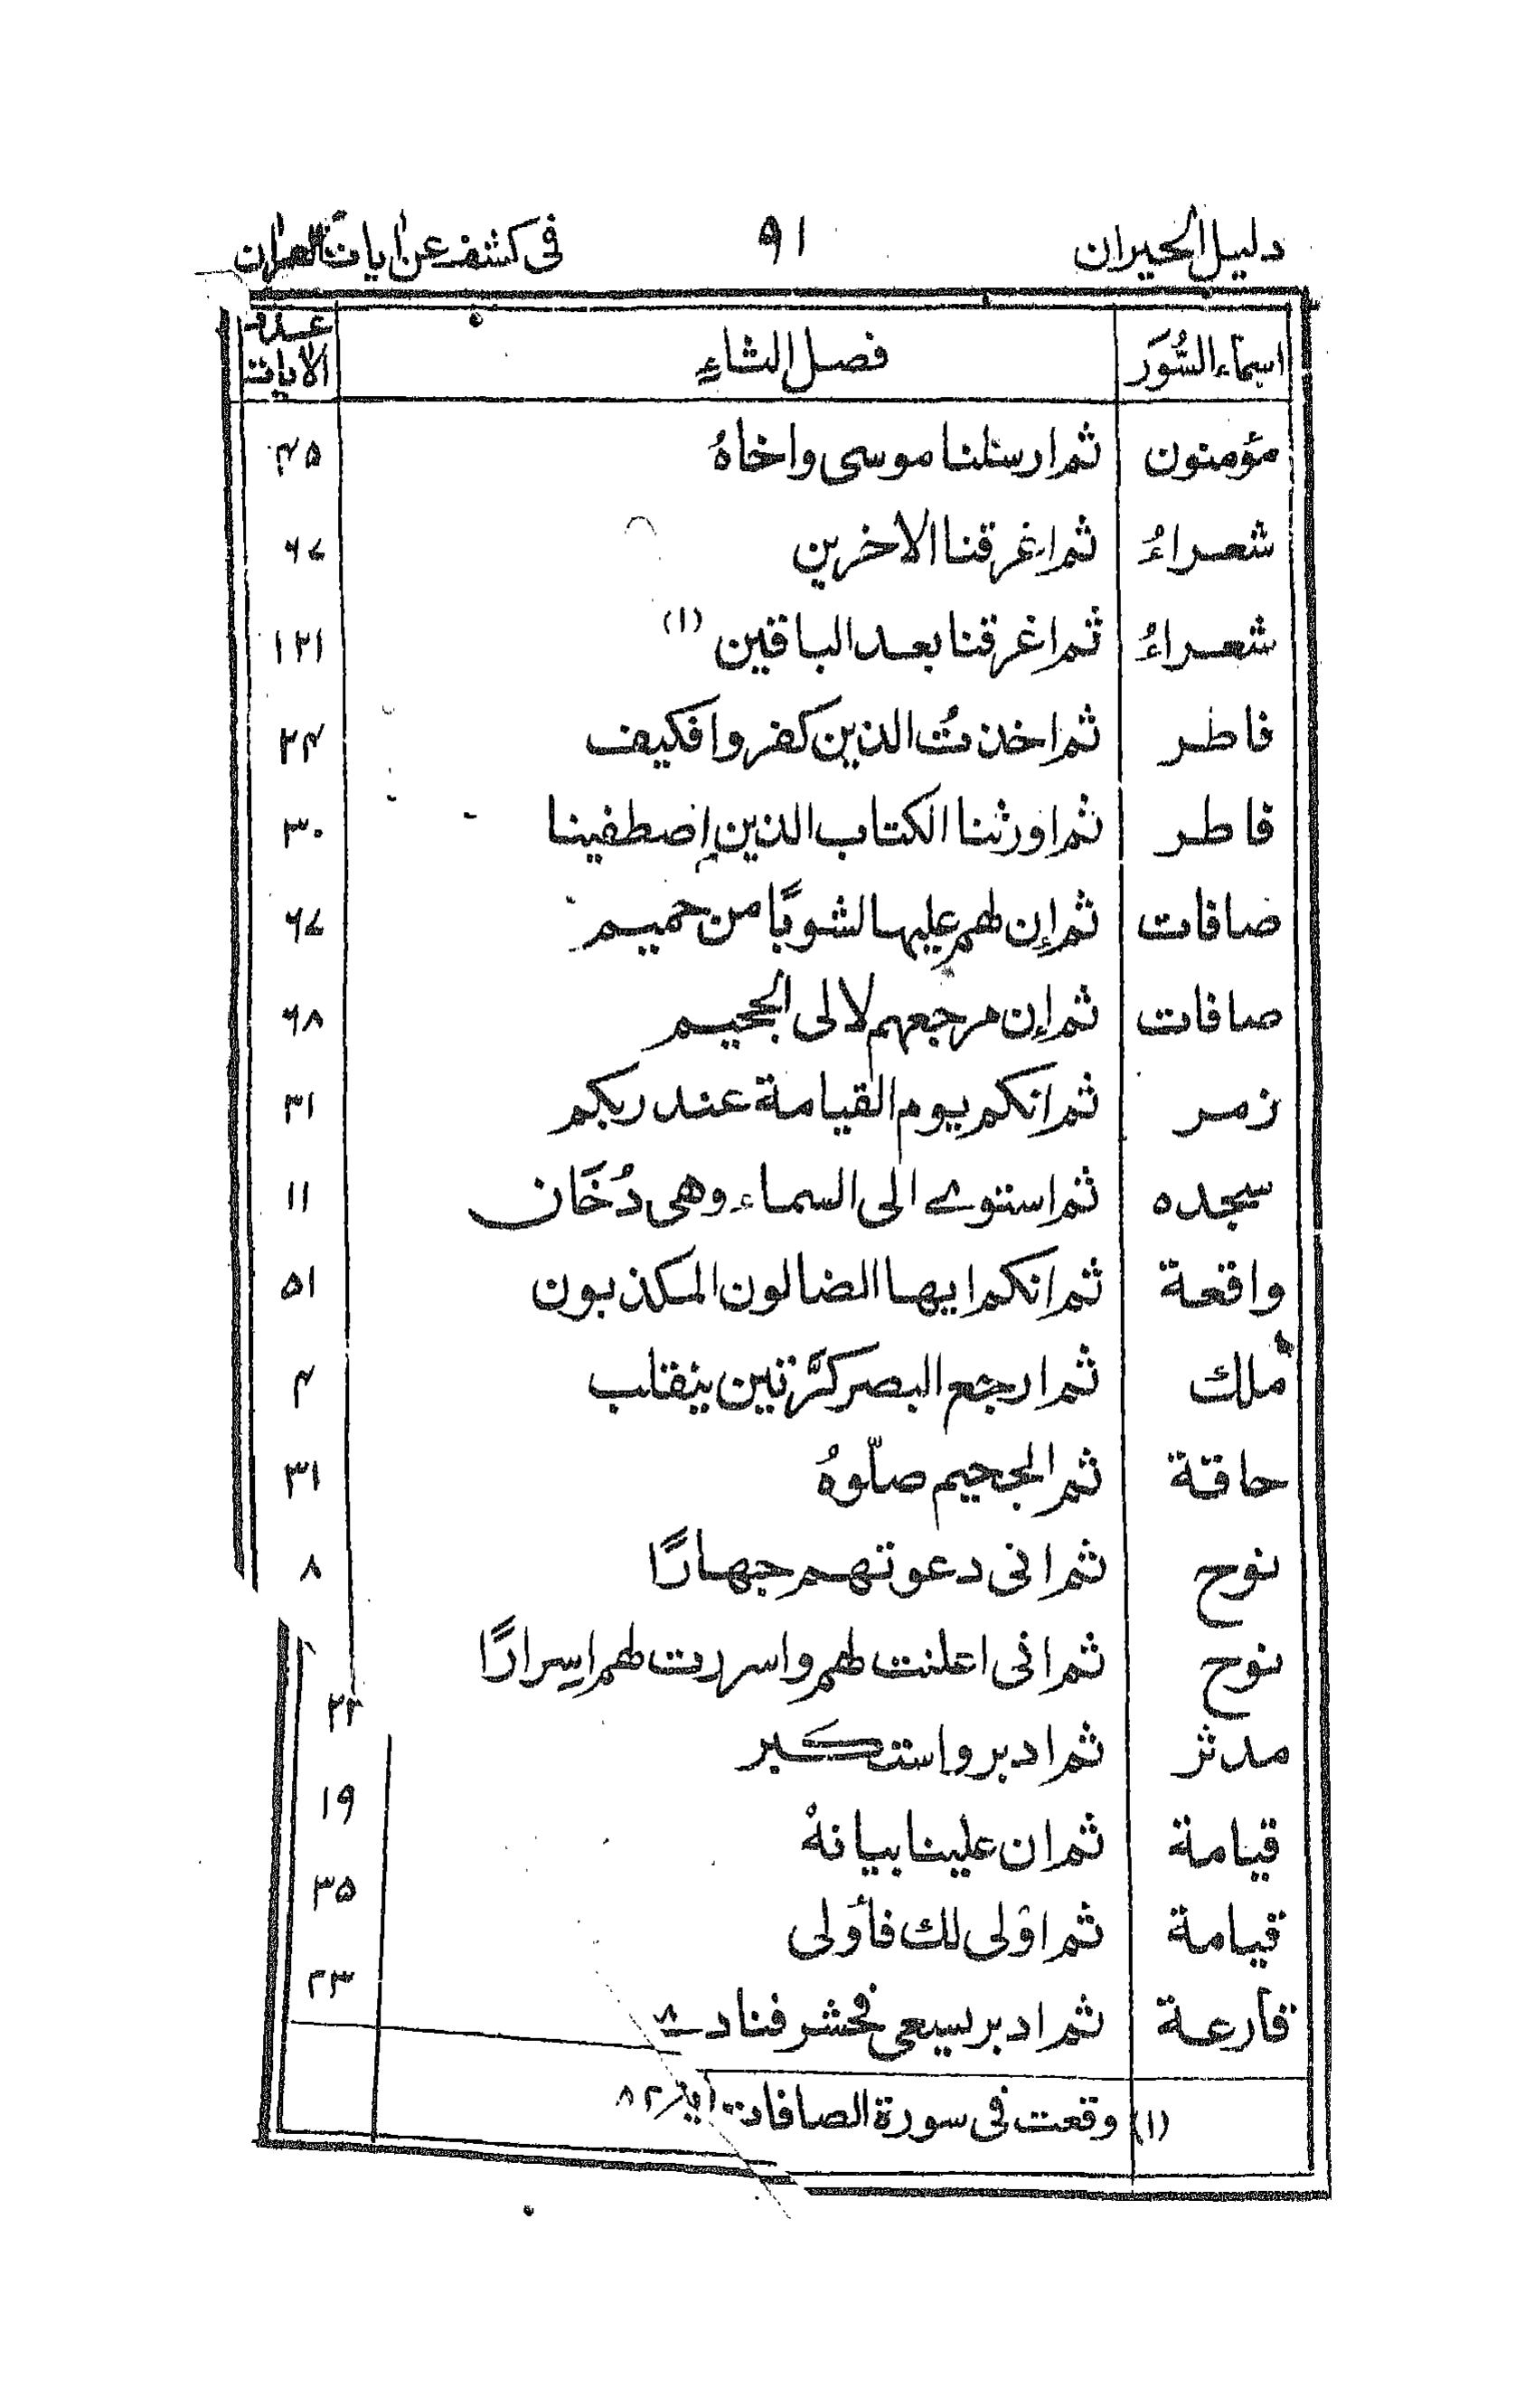 دليل الحيران ٩١ فى كشف عن ايات القران
اسماء السُّوَر فصل الثاءِ عدد الايات
مؤمنون ثم ارسلنا موسى واخاهُ ۴۵
شعراءُ ثم اغرقنا الاخرين ۶۷
شعراءُ ثم اغرقنا بعد الباقين (١) ١٢١
فاطر ثم اخذتُ الذين كفروا فكيف ٢۴
فاطر ثم اورثنا الكتاب الذين اصطفينا ٣٠
صافات ثم إن لهم عليها لشوبًا من حميم ۶۷
صافات ثم إن مرجعهم لالى الجحيم ۶٨
زمر ثم انكم يوم القيامة عند ربكم ٣١
سجده ثم استوے الى السماء وهى دُخَان ١١
واقعة ثم انكم ايها الضالون المكذبون ۵١
ملك ثم ارجع البصر كرّتين ينقلب ۴
حاقة ثم الجحيم صلّوهُ ٣١
نوح ثم انى دعوتهم جهارًا ٨
نوح ثم انى اعلنت لهم واسررت لهم اسرارًا
مدثر ثم ادبر واستكبر ٢٣
قيامة ثم ان علينا بيانهُ ١٩
قيامة ثم اوْلى لك فأوْلى ٣۵
قارعة ثم ادبر يسعى فحشر فنادى ٢٣
(١) وقعت فى سورة الصافات آية ٨٢